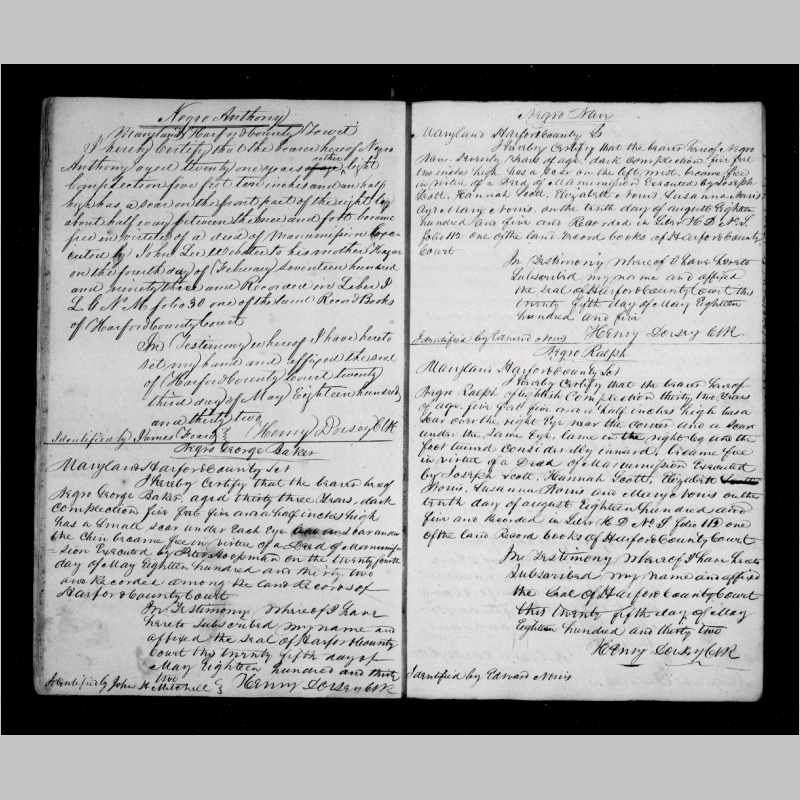 Negro Anthony
Maryland Harford County Towit
I hereby Certify that the bearer hereof Negro
Anthony aged twenty one years rather light
Complection five feet two inches and an half
high has a scar on the front part of the right leg
about half way between the knee and foot became
free in virtue of a deed of Manumission Exe
cuted by John Lee Webster to his mother Hagar
on the fourth day of February Seventeen hundred
and ninety three and Recorded in Liber J
L G N M folio 30 one of the Land Record Books
of Harford County Court
In Testimony whereof I have hereto
set my hand and affixed the seal
of Harford County Court twenty
third day of May Eighteen hundred
and thirty two
Identified by James Henry Dorsey Clk
Negro George Baker
Maryland Harford County Sct
I hereby Certify that the bearer hereof
Negro George Baker, aged thirty three Years, dark
Complection five feet five and a half inches high
has a Small scar under Each Eye a Scar under
the Chin became free in virtue of a Deed of Manumis
sion Executed by Hopkman on the twenty fourth
day of May Eighteen hundred and thirty two
and Recorded among the Land Records of
Harford County Court
In Testimony Whereof I have
hereto Subscribed my name and
affixed the Seal of Harford County
Court this twenty fifth day of
May Eighteen hundred and thirty
two
Identified by John H Mitchell Henry Dorsey Clk
Negro Nan
Maryland Harford County Sct
I hereby Certify that the bearer hereof Negro
Nan Seventy Years of age dark Complection five feet
two inches high has a Scar on the left wrist became free
in virtue of a Deed of Manumission Executed by Joseph
Scott, Hannah Scott, Elizabeth Norris, Susanna Norris
and Mary Norris, on the tenth day of august Eighteen
hundred and five and Recorded in Liber H D No S
folio 112 one of the land record books of Harford County
Court
In Testimony Whereof I have hereto
Subscribed my name and affixed
the Seal of Harford County Court this
twenty fifth day of May Eighteen
hundred and five
Henry Dorsey Clk
Identified by Edward Norris
Negro Ralph
Maryland Harford County Sct
I hereby Certify that the bearer hereof
Negro Ralph of blackish Complection thirty two Years
of age five feet five and a half inches high has a
Scar over the right Eye near the corner and a Scar
under the Same Eye, lame in the right leg and
foot turned considerably inward, became free
in virtue of a Deed of Manumission Executed
by Joseph Scott, Hannah Scott, Elizabeth
Norris, Susanna Norris and Mary Norris on the
tenth day of august Eighteen hundred and
five and Recorded in Liber H D No S folio 112 one
of the land Record books of Harford County Court
In Testimony Whereof I have hereto
Subscribed my name and affixed
the Seal of Harford County Court
this twenty fifth day of May
Eighteen hundred and thirty two
Henry Dorsey Clk
Identified by Edward Norris